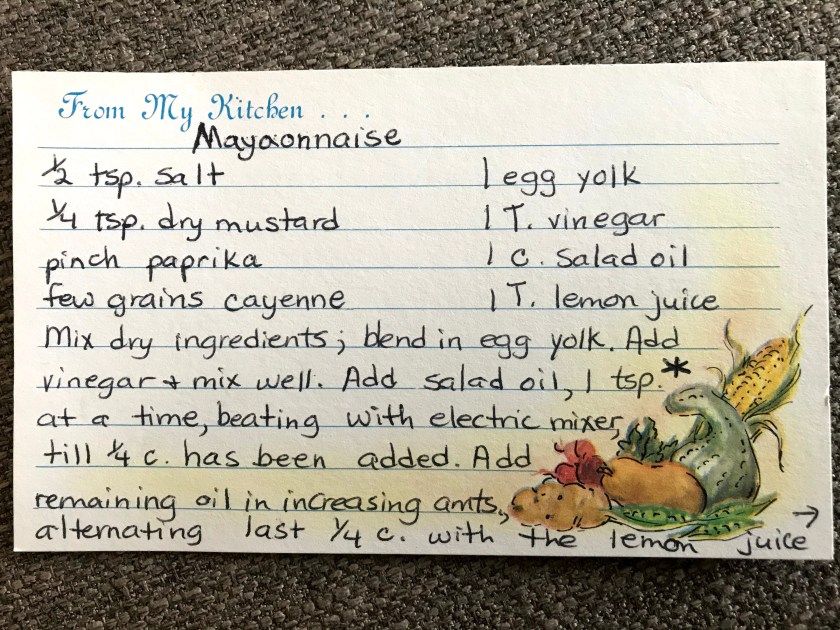 From My Kitchen . . .
Mayaonnaise
½ tsp. salt 1 egg yolk
¼ tsp. dry mustard 1 T. vinegar
pinch paprika 1 C. salad oil
few grains cayenne 1 T. lemon juice
Mix dry ingredients; blend in egg yolk. Add
vinegar + mix well. Add salad oil, 1 tsp.*
at a time, beating with electric mixer,
till ¼ c. has been added. Add
remaining oil in increasing amts,
alternating last ¼ c. with the lemon juice →